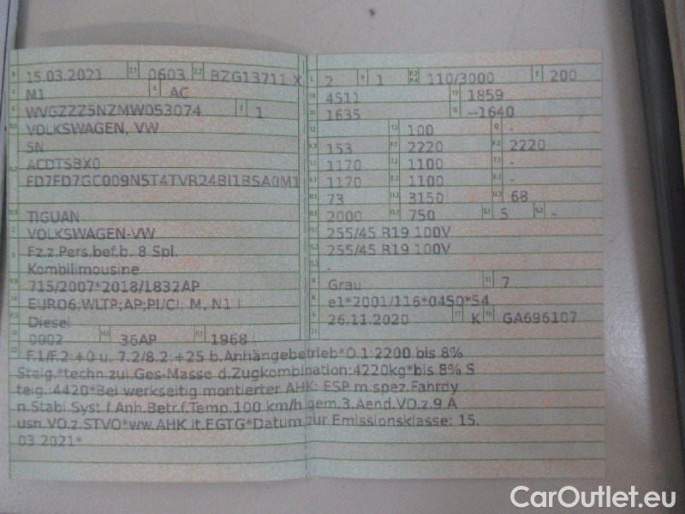 15.03.2021 0603 BZG13711 X
M1 AC
WVGZZZ5NZMW053074 1
VOLKSWAGEN, VW
5N
ACDTSBX0
FD7FD7GC009N5T4TVR24BI1BSA0M1
TIGUAN
VOLKSWAGEN-VW
Fz.z.Pers.bef.b. 8 Spl.
Kombilimousine
715/2007*2018/1832AP
EURO6;WLTP;AP;PI/CI; M, N1 I
Diesel
0002 36AP 1968
2 1 110/3000 200
4511 1859
1635 -1640
100 -
153 2220 2220
1170 1100 -
1170 1100 -
73 3150 68
2000 750 5 -
255/45 R19 100V
255/45 R19 100V
-
Grau 7
e1*2001/116*0450*54
26.11.2020 K GA696107
F.1/F.2:+0 u. 7.2/8.2:+25 b.Anhängebetrieb*O.1:2200 bis 8%
Steig.*techn.zul.Ges-Masse d.Zugkombination:4220kg*bis 8% S
teig.:4420*Bei werkseitig montierter AHK: ESP m.spez.Fahrdy
n.Stabi.Syst.f.Anh.Betr.f.Temp.100 km/h gem.3.Aend.VO.z.9.A
usn.VO.z.STVO*ww.AHK lt.EGTG*Datum zur Emissionsklasse: 15.
03.2021*
CarOutlet.eu